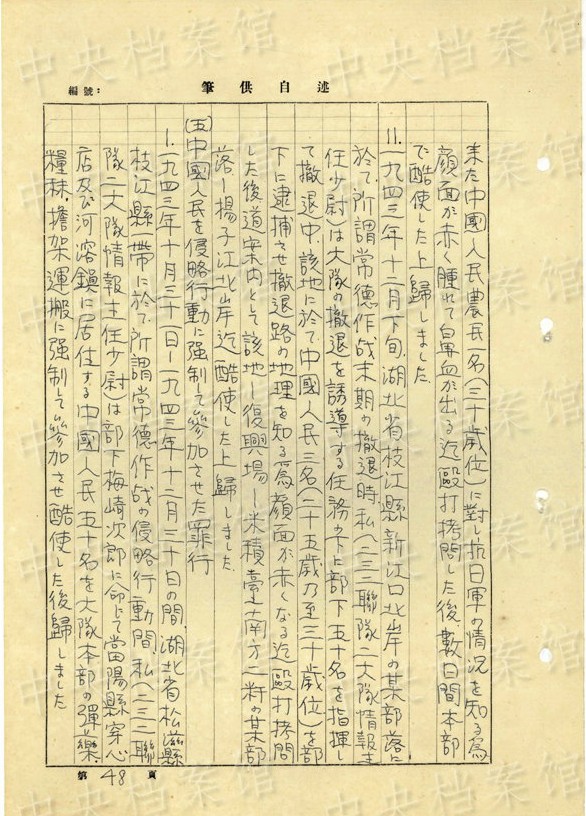 中央档案馆
編號：
筆供自述
来た中國人民農民一名(三十歲位)に對し抗日軍の情況を知る爲
顔面が赤く腫れて鼻血が出る迄毆打拷問した後、數日間本部
で酷使した上歸しました
11.一九四三年十二月下旬、湖北省枝江縣新江口北岸の某部落に
於て所謂常德作战末期の撤退時、私(二三二聯隊二大隊情報主
任少尉)は大隊の撤退を誘導する任務の下に部下五十名を指揮し
て撤退中、該地に於て中國人民三名(二十五歲乃至三十歲位)を部
下に逮捕させ撤退路の地理を知る爲顔面が赤くなる迄毆打拷問
した後道案内として該地ー復興場ー米積臺ー南方二粁の某部
落ー揚子江北岸迄酷使した上歸しました
(五)中國人民を侵略行動に强制して参加させた罪行
1.一九四三年十月三十一日ー一九四三年十二月三十日の間、湖北省松滋縣
枝江縣帶に於て所謂常德作战の侵略行動間私(二三二聯
隊二大隊情報主任少尉)は部下梅崎次郎に命じて當陽縣穿心
店及び河溶鎭に居住する中國人民五十名を大隊本部の彈藥
糧秣、擔架運搬に强制して参加させ酷使した後歸しました
第 48 頁